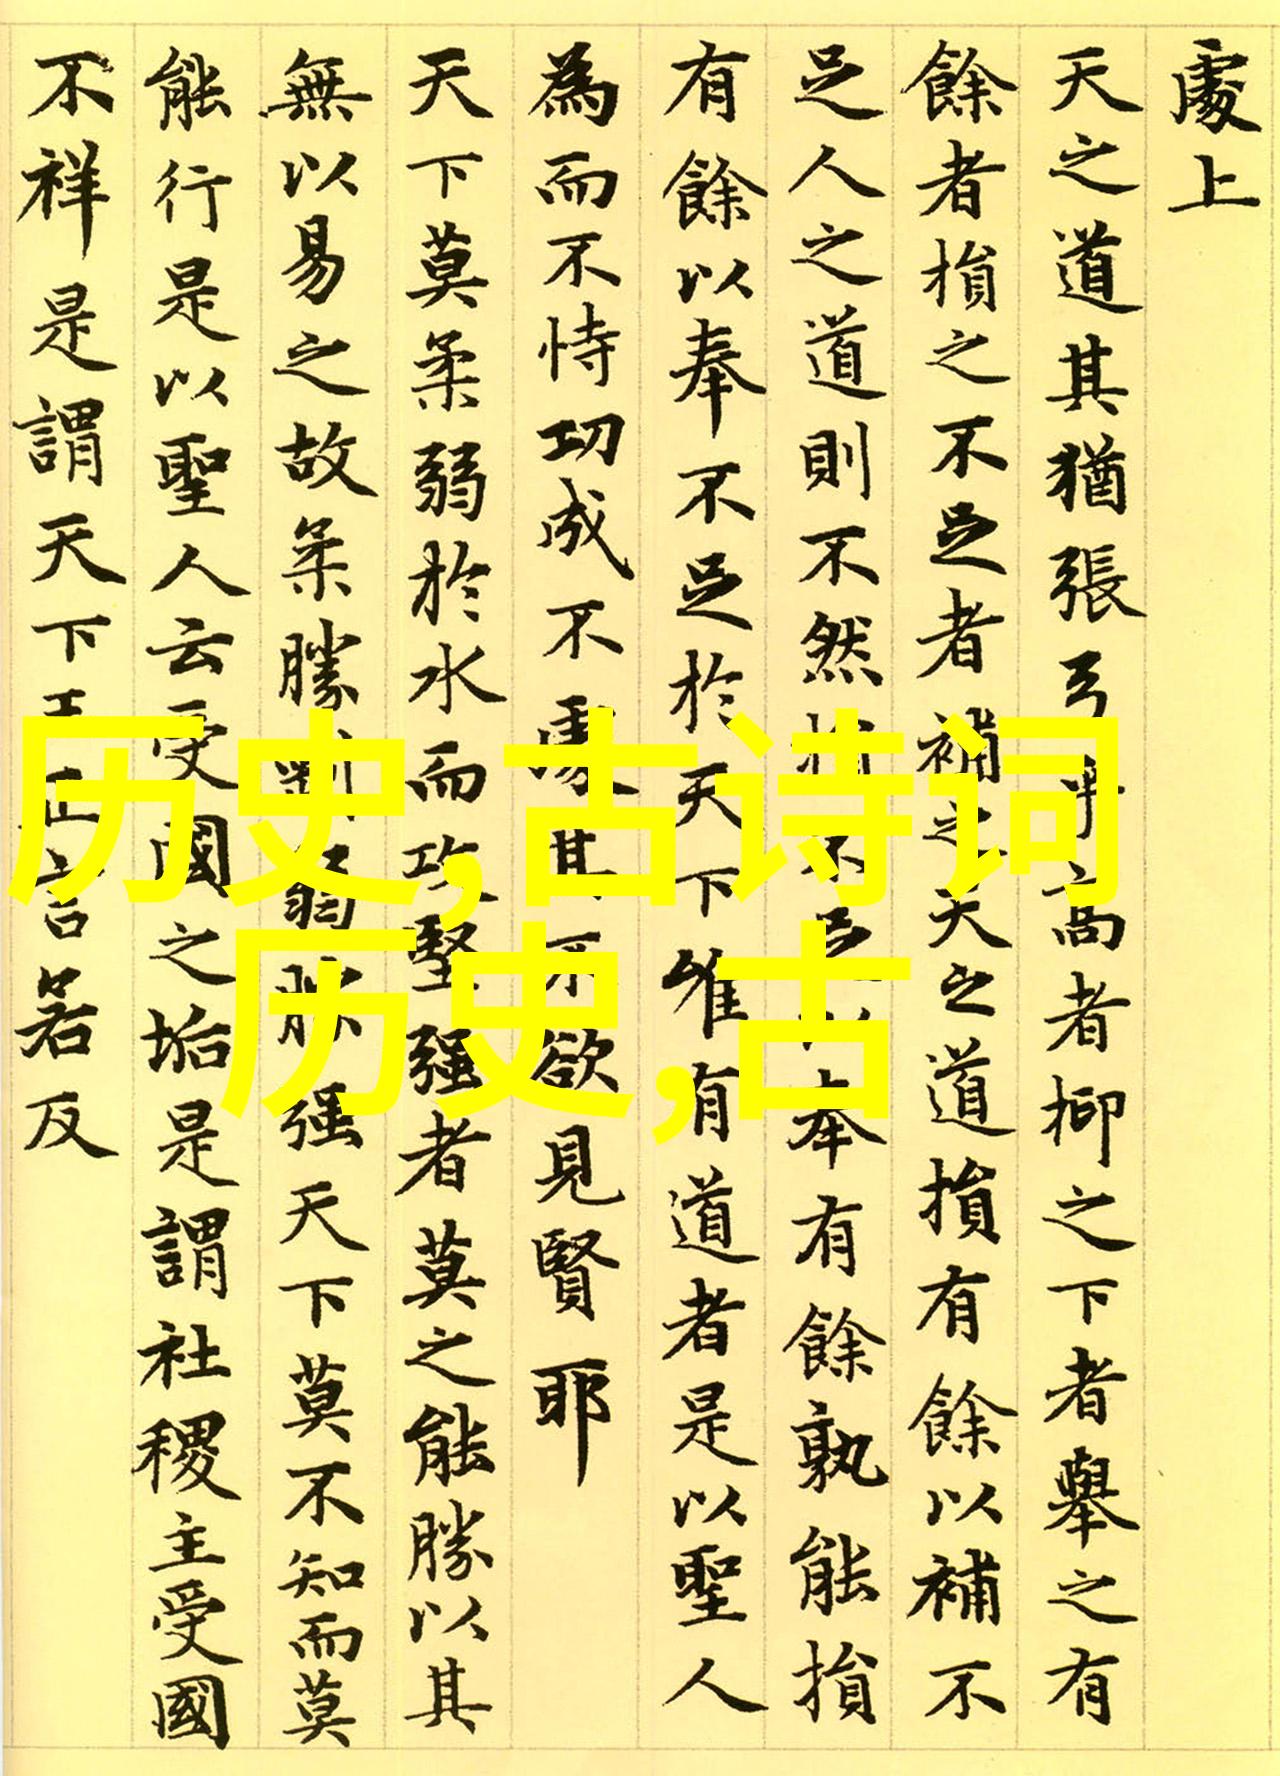 處上
天之道其猶張弓乎高者抑之下者舉之有
餘者損之不足者補之天之道損有餘以補不
足人之道則不然損不足以奉有餘孰能損
有餘以奉不足於天下唯有道者是以聖人
為而不恃功成不處其不欲見賢耶
天下莫柔弱於水而攻堅强者莫之能勝以其
無以易之故柔勝剛弱勝强天下莫不知而莫
能行是以聖人云受國之垢是謂社稷主受國
不祥是謂天下王正言若反
历史,古诗词
历史,古